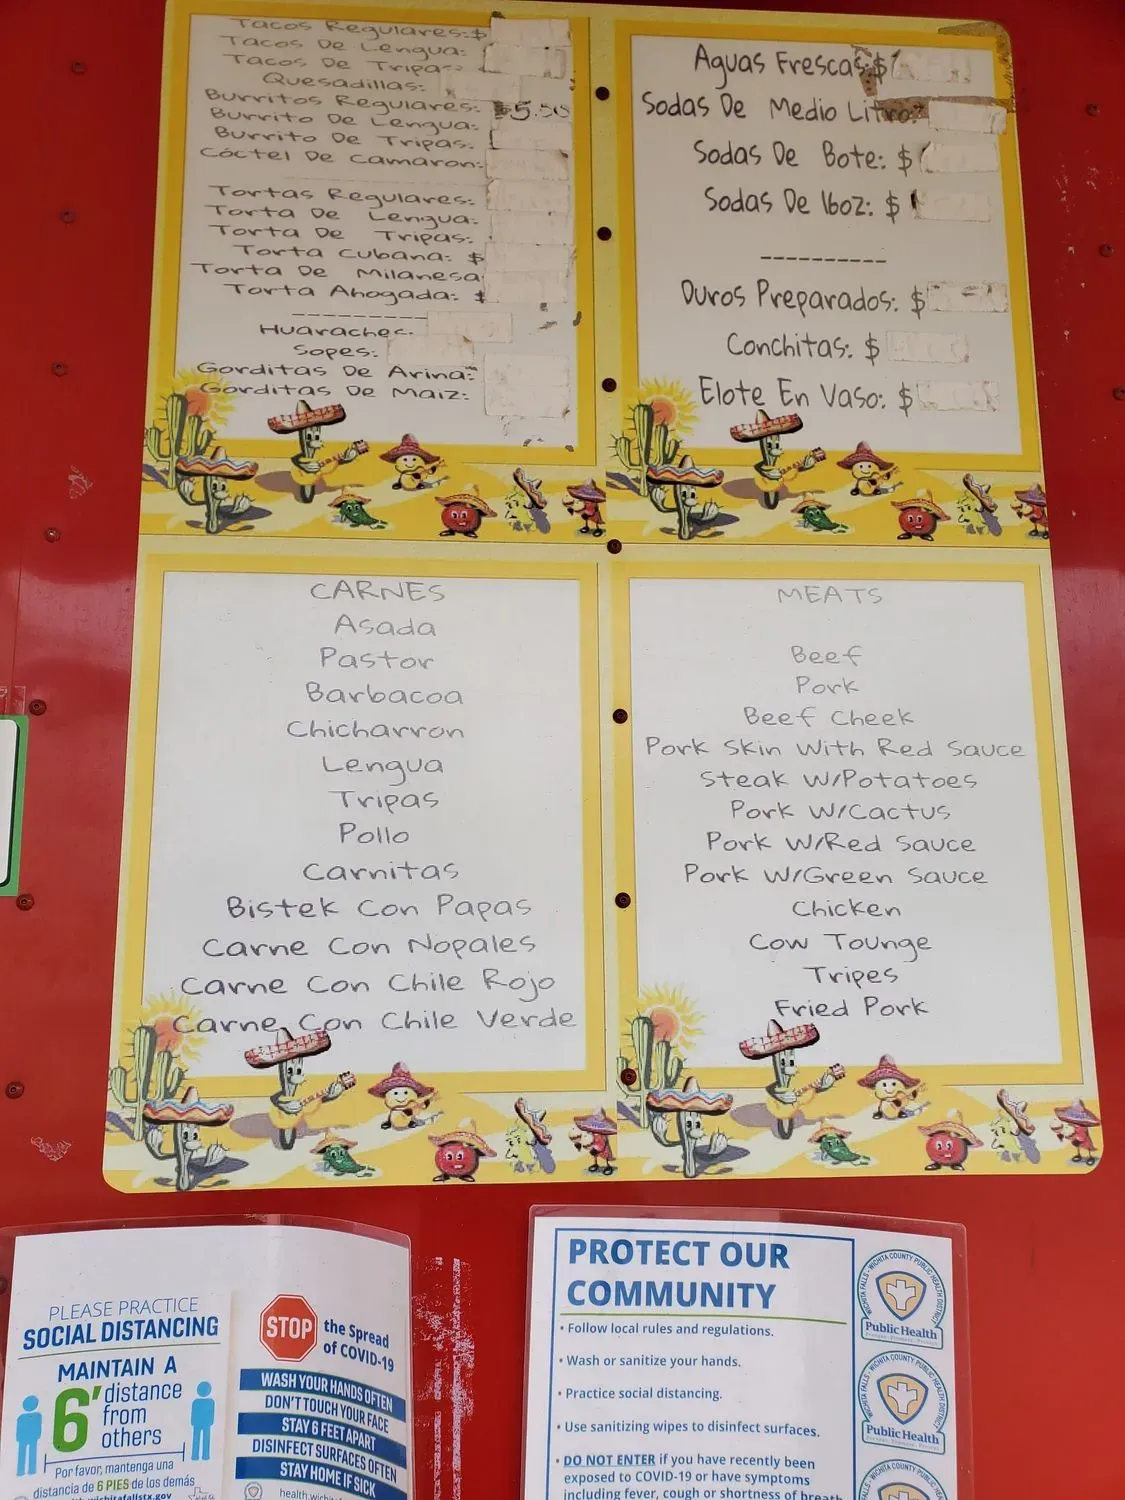 Tacos Regulares: $
Tacos De Lengua:
Tacos De Tripa
Quesadillas:
Burritos Regulares: $5.50
Burrito De Lengua:
Burrito De Tripas:
Cóctel De Camaron:
Tortas Regulares:
Torta De Lengua:
Torta De Tripas:
Torta Cubana: $
Torta De Milanesa
Torta Ahogada: $
----------
Huaraches:
Sopes:
Gorditas De Arina:
Gorditas De Maiz:
Aguas Frescas: $
Sodas De Medio Litro:
Sodas De Bote: $
Sodas De 16oz: $
----------
Duros Preparados: $
Conchitas: $
Elote En Vaso: $
CARNES
Asada
Pastor
Barbacoa
Chicharron
Lengua
Tripas
Pollo
Carnitas
Bistek Con Papas
Carne Con Nopales
Carne Con Chile Rojo
Carne Con Chile Verde
MEATS
Beef
Pork
Beef Cheek
Pork Skin With Red Sauce
Steak W/Potatoes
Pork W/Cactus
Pork W/Red Sauce
Pork W/Green Sauce
Chicken
Cow Tounge
Tripes
Fried Pork
PLEASE PRACTICE
SOCIAL DISTANCING
MAINTAIN A
6' distance
from
others
Por favor, mantenga una
distancia de 6 PIES de los demás
wichitafallstx.gov
STOP the Spread
of COVID-19
WASH YOUR HANDS OFTEN
DON'T TOUCH YOUR FACE
STAY 6 FEET APART
DISINFECT SURFACES OFTEN
STAY HOME IF SICK
health.wichita
PROTECT OUR
COMMUNITY
• Follow local rules and regulations.
• Wash or sanitize your hands.
• Practice social distancing.
• Use sanitizing wipes to disinfect surfaces.
• DO NOT ENTER if you have recently been
exposed to COVID-19 or have symptoms
including fever, cough or shortness of breath
WICHITA FALLS - WICHITA COUNTY PUBLIC HEALTH DISTRICT
Public Health
WICHITA FALLS - WICHITA COUNTY PUBLIC HEALTH DISTRICT
Public Health